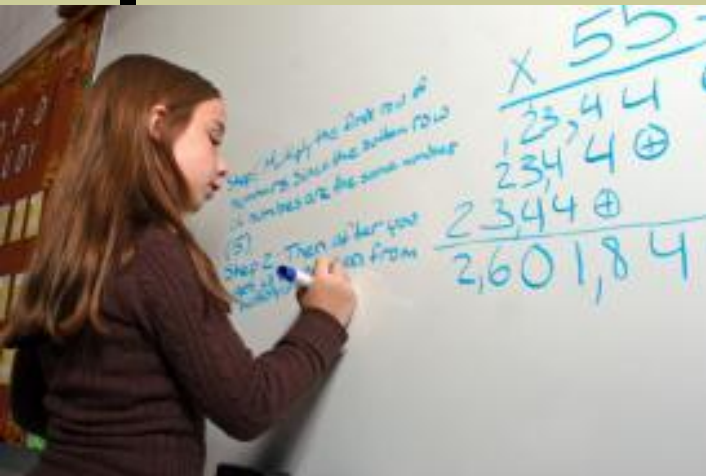 Step 1 Multiply the first row of
numbers since the bottom row
is numbers are the same number
(5)
Step 2: Then after you
from
x 555
,23,44
2344⊕
23,44⊕
2,601,84